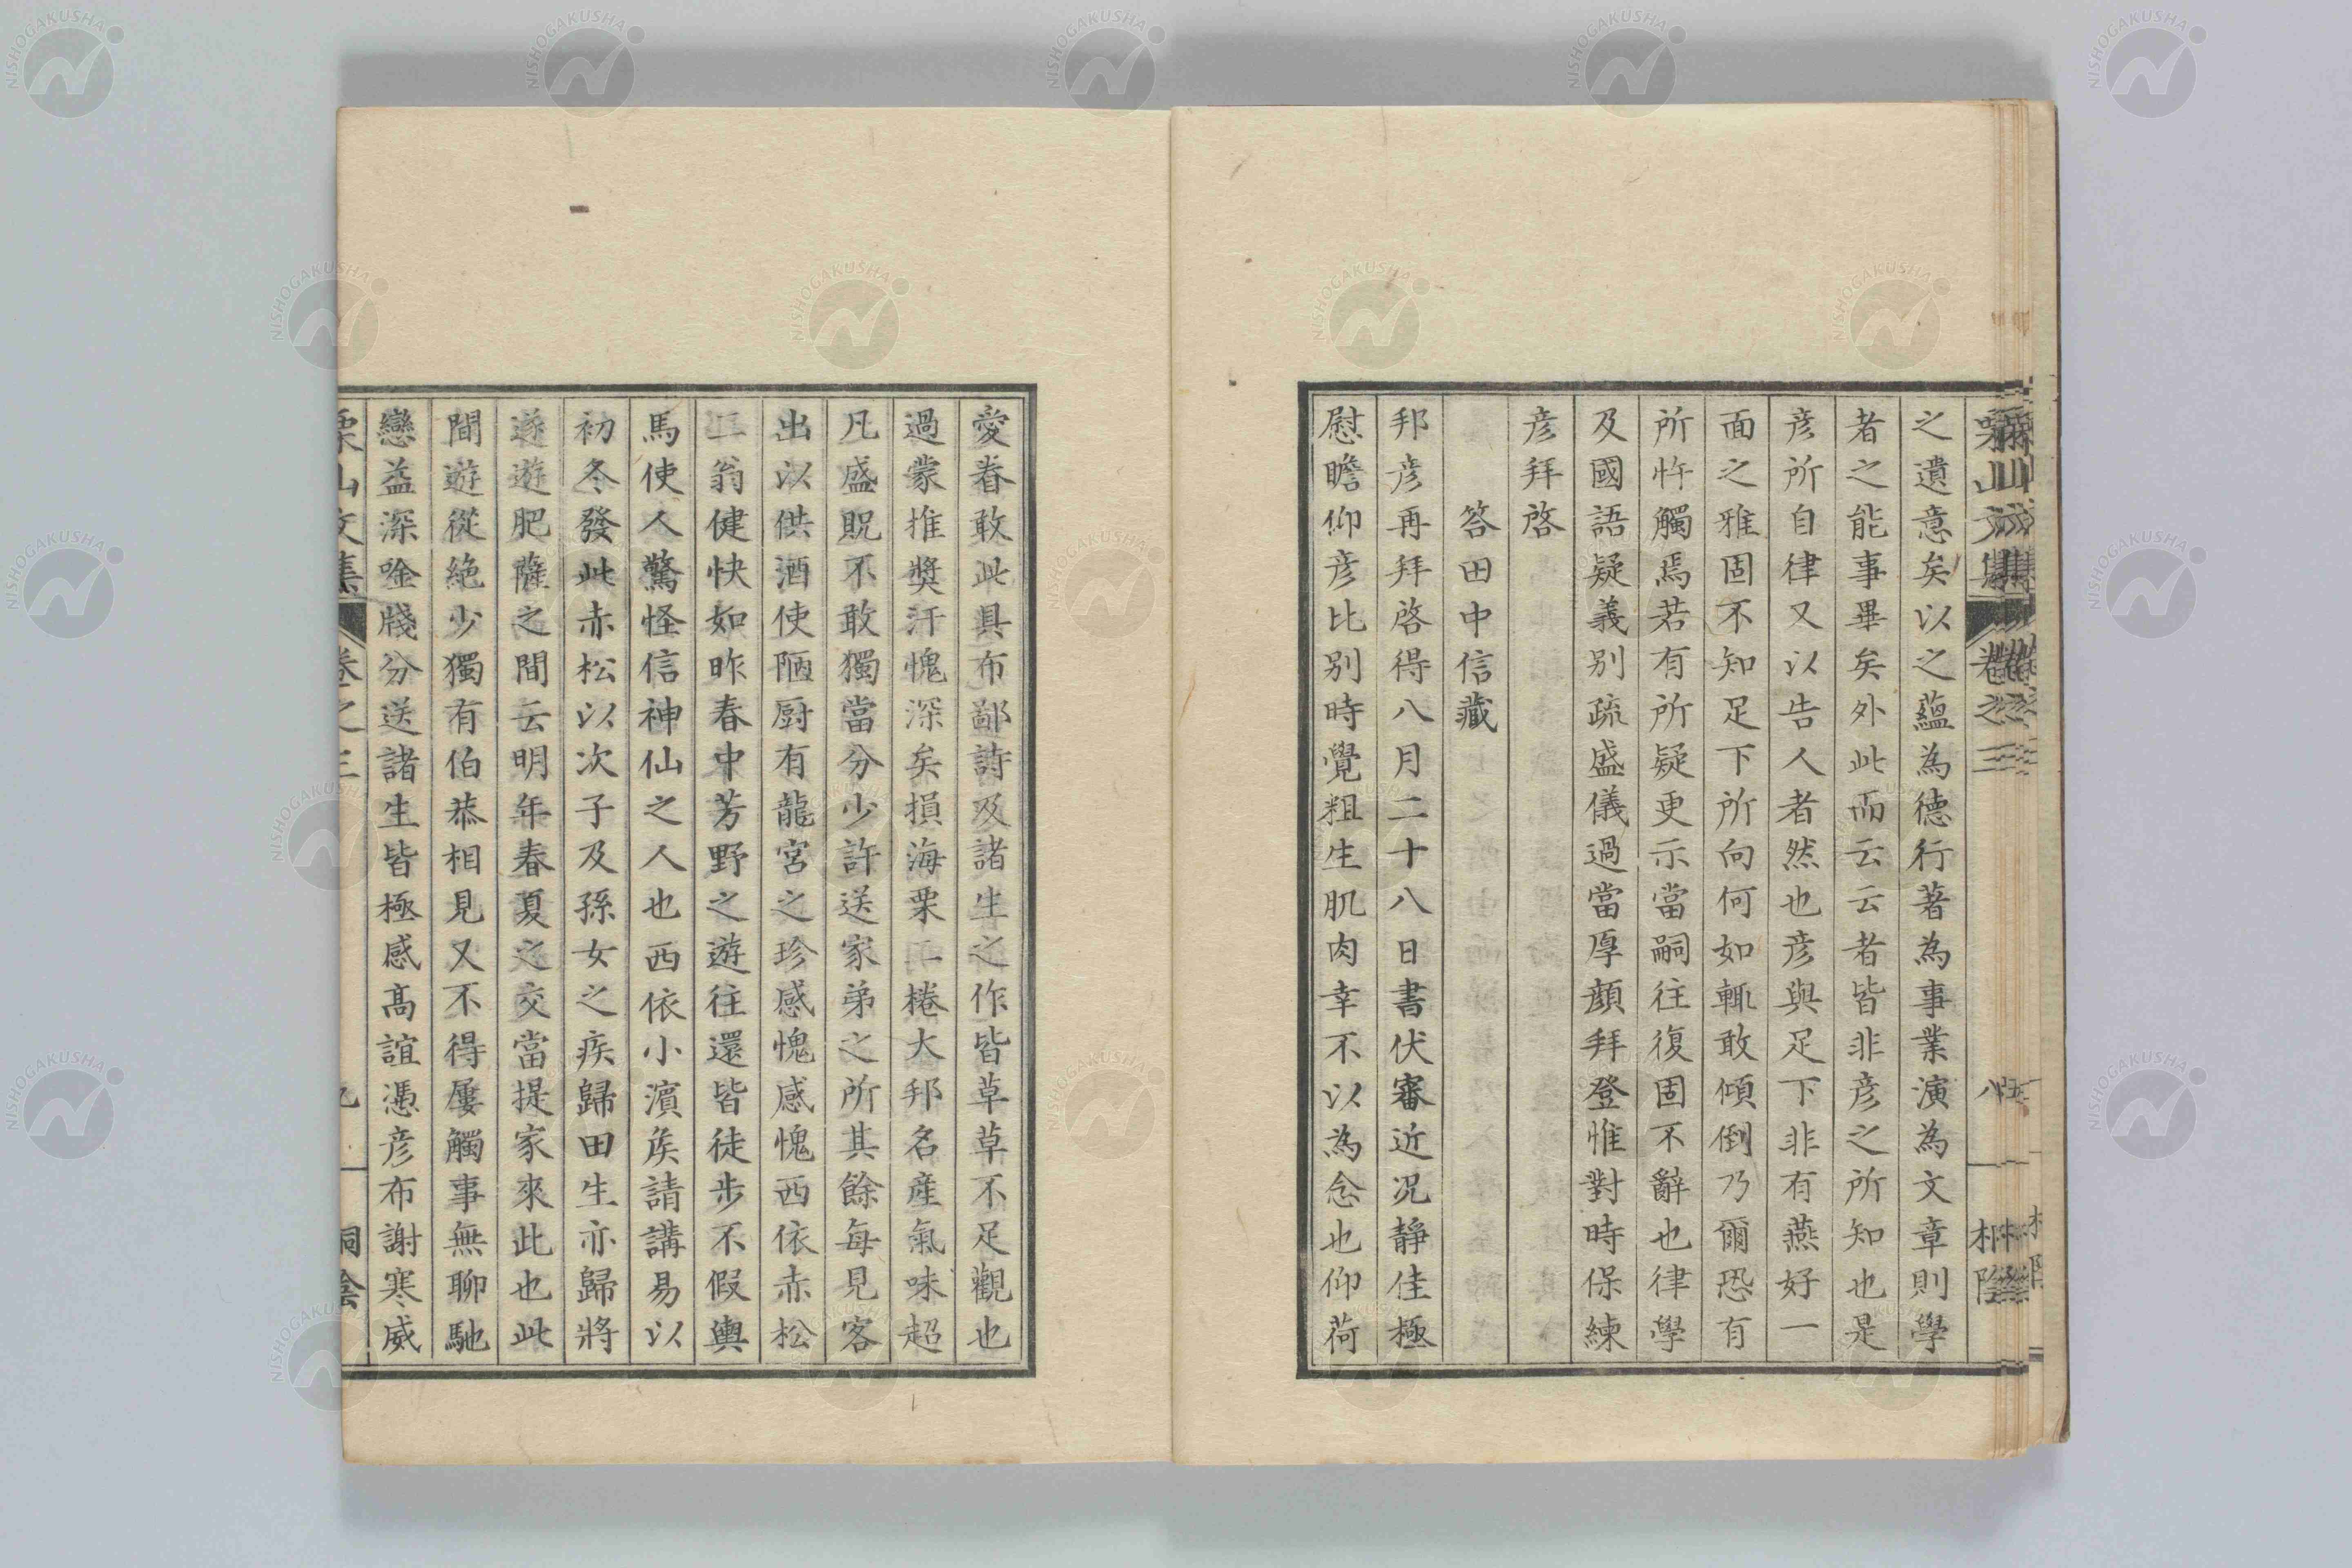 之遺意矣以之蘊為德行著為事業演為文章則學
者之能事畢矣外此而云云者皆非彦之所知也是
彦所自律又以告人者然也彦與足下非有燕好一
面之雅固不知足下所向何如輒敢傾倒乃爾恐有
所忤觸焉若有所疑更示當嗣往復固不辭也律學
及國語疑義別疏盛儀過當厚顔拜登惟對時保練
彦拜啓
答田中信藏
邦彦再拜啓得八月二十八日書伏審近况靜佳極
慰瞻仰彦比別時覺粗生肌肉幸不以為念也仰荷
愛眷敢此具布鄙詩及諸生之作皆草草不足觀也
過蒙推奬汗愧深矣損海栗二棬大邦名産氣味超
凡盛貺不敢獨當分少許送家弟之所其餘每見客
出以供酒使陋厨有龍宮之珍感愧感愧西依赤松
二翁健快如昨春中芳野之遊往還皆徒步不假輿
馬使人驚怪信神仙之人也西依小濵矦請講易以
初冬發此赤松以次子及孫女之疾歸田生亦歸將
遂遊肥薩之間云明年春夏之交當提家來此也此
間遊從絶少獨有伯恭相見又不得屢觸事無聊馳
戀益深唫牋分送諸生皆極感高誼憑彦布謝寒威
栗山文集 卷之三 九
NISHOGAKUSHA